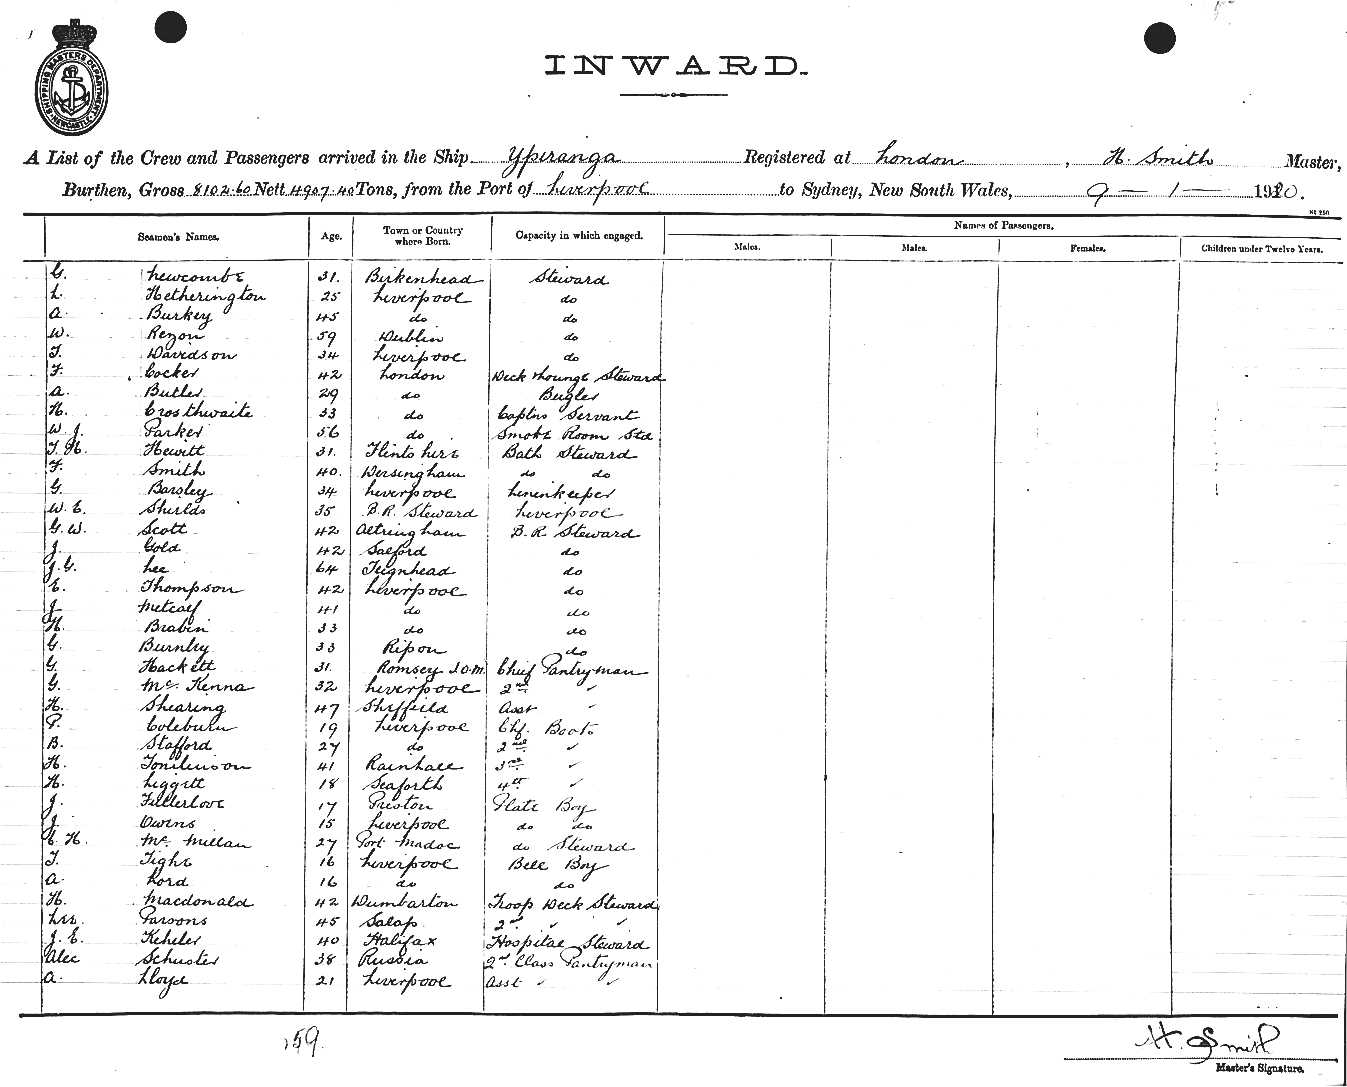 SHIPPING MASTERS DEPARTMENT NEWCASTLE
INWARD.
A List of the Crew and Passengers arrived in the Ship Ypiranga Registered at London, H. Smith Master,
Burthen, Gross 8102.60 Nett 4907.40 Tons, from the Port of Liverpool to Sydney, New South Wales, 9 - 1 - 1920.
Seamen's Names. Age. Town or Country where Born. Capacity in which engaged. Names of Passengers.
Males. Males. Females. Children under Twelve Years.
G. Newcombe 31. Birkenhead Steward
L. Hetherington 25 Liverpool do
A. Burkey 45 do do
W. Regon 59 Dublin do
T. Davidson 34 Liverpool do
F. Cocker 42 London Deck Lounge Steward
A. Butler 29 do Bugler
H. Crosthwaite 33 do Captns Servant
W. J. Parker 56 do Smoke Room Std
T. H. Hewitt 31. Flintshire Bath Steward
F. Smith 40. Dersingham do do
G. Barsley 34 Liverpool Linenkeeper
W. E. Shields 35 B.R. Steward Liverpool
G. W. Scott 42 Altringham B.R. Steward
J. Gold 42 Salford do
J. G. Lee 64 Teignhead do
E. Thompson 42 Liverpool do
J. Metcalf 41 do do
H. Brabin 33 do do
G. Burnley 33 Ripon do
G. Hackett 31. Romsey I.O.M. Chief Pantryman
G. McKenna 32 Liverpool 2nd ✓
H. Shearing 47 Sheffield Asst ✓
P. Coleburn 19 Liverpool Chf. Boots
B. Stafford 27 do 2nd ✓
H. Tomlinson 41 Rainhall 3rd ✓
H. Liggett 18 Seaforth 4th ✓
J. Fullerlove 17 Preston Plate Boy
J. Owens 15 Liverpool do do
C. H. McMillan 27 Port Madoc do Steward
T. Tighe 16 Liverpool Bell Boy
A. Lord 16 do do
H. Macdonald 42 Dumbarton Troop Deck Steward
Parsons 45 Salop 2nd ✓ ✓
J. E. Keheler 40 Halifax Hospital Steward
Alec Schuster 38 Russia 2nd Class Pantryman
A. Lloyd 21 Liverpool Asst ✓ ✓
159.
H. Smith
Master's Signature.